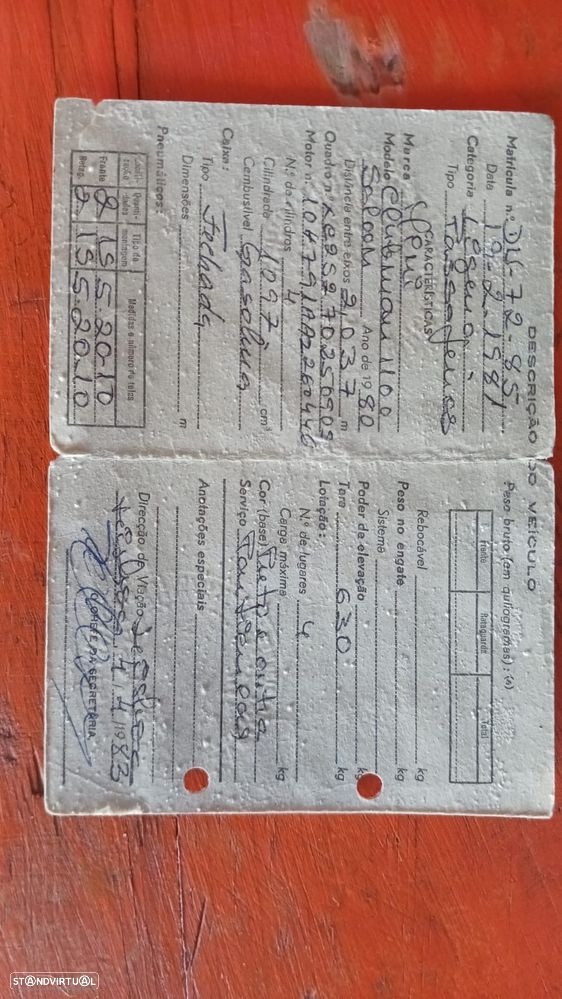 DESCRIÇÃO DO VEÍCULO
Matrícula n.º DN-72-85
Data 19-2-1981
Categoria Ligeiro
Tipo Passageiros
CARACTERÍSTICAS
Marca Mini
Modelo Clubman 1100
Saloon Ano de 1980
Distância entre eixos 2,037 m
Quadro n.º
Motor n.º
N.º de cilindros 4
Cilindrada 1097 cm³
Combustível Gasolina
Caixa:
Tipo Fechada
Dimensões m
Pneumáticos:
Locali-zação Quanti-dades Tipo de montagem Medidas e número de telas
Frente 2 155.20.10
Retag. 2 155.20.10
Peso bruto (em quilogramas): (a)
Frente Retaguarda Total
Rebocável kg
Peso no engate kg
Sistema
Poder de elevação kg
Tara 630 kg
Lotação:
N.º de lugares 4
Carga máxima kg
Cor (base) Preto e
Serviço Particular
Anotações especiais
Direcção de Viação de Lisboa
Lisboa 4/4/1983
O CHEFE DA SECRETARIA
STANDVIRTUAL